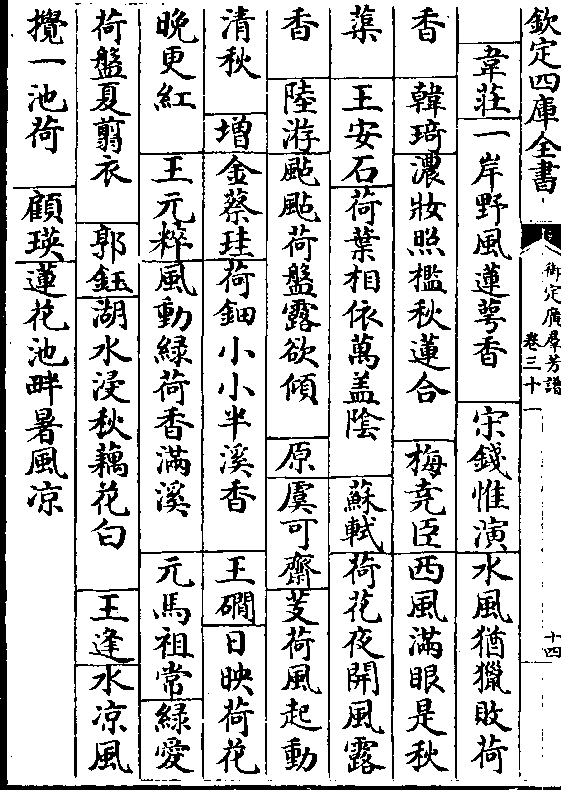 欽定四庫全書
御定廣羣芳譜
卷三十
十四
韋莊一岸野風蓮萼香 宋錢惟演水風猶獵敗荷
香 韓琦濃妝照檻秋蓮合 梅堯臣西風滿眼是秋
蕖 王安石荷葉相依萬盖陰 蘇軾荷花夜開風露
香 陸游颭颭荷盤露欲傾 原虞可齋芰荷風起動
清秋 增金蔡珪荷鈿小小半溪香 王磵日映荷花
晚更紅 王元粹風動緑荷香滿溪 元馬祖常緑愛
荷盤夏翦衣 郭鈺湖水浸秋藕花白 王逢水凉風
攪一池荷 顧瑛蓮花池畔暑風凉